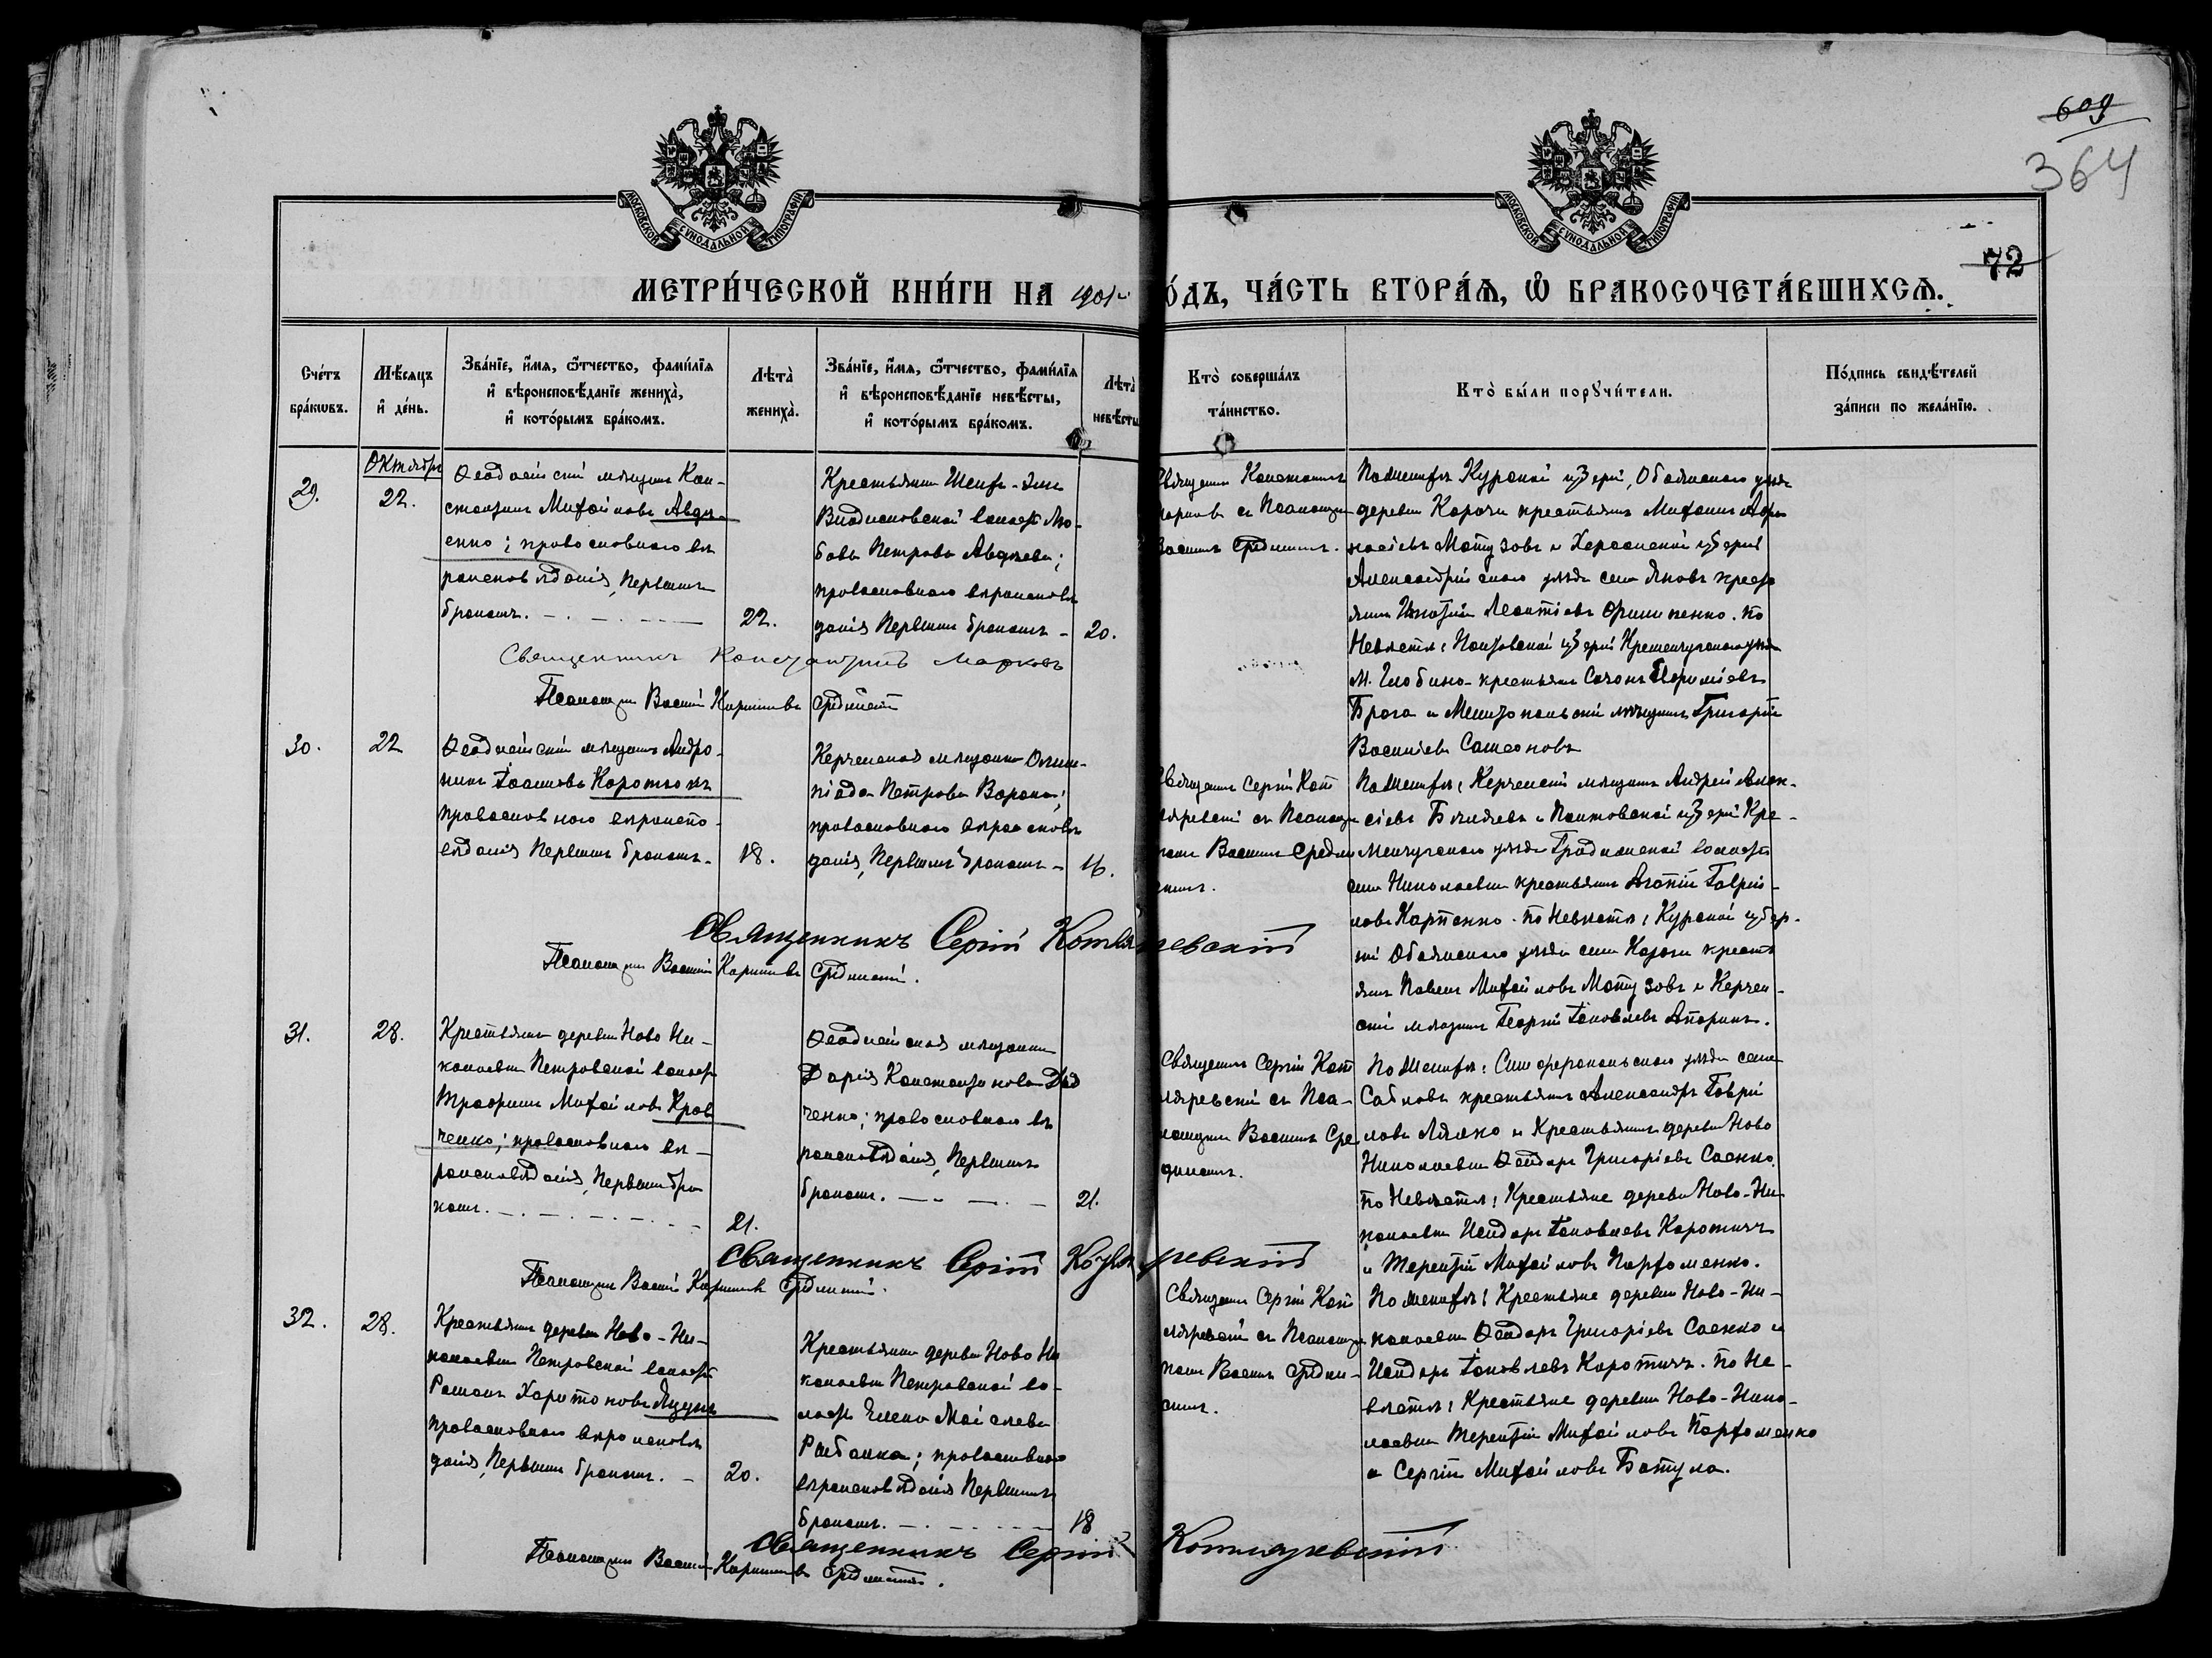 609
364
72
МОСКОВСКОЙ СУНОДАЛЬНОЙ ТИПОГРАФІИ
МОСКОВСКОЙ СУНОДАЛЬНОЙ ТИПОГРАФІИ
МЕТРИ́ЧЕСКОЙ КНИ́ГИ НА 1901 О́ДЪ, ЧА́СТЬ ВТОРА́Ѧ, Ѿ БРАКОСОЧЕТА́ВШИХСѦ.
Сче́тъ бра́кѡвъ.
Мѣ́сяцъ и҆ де́нь.
Зва́нїе, и҆́мѧ, ѻ҆́тчество, фами́лїѧ
и҆ вѣроисповѣ́данїе жениха̀,
и҆ кото́рымъ бра́комъ.
Лѣта̀ жениха̀.
Зва́нїе, и҆́мѧ, ѻ҆́тчество, фами́лїѧ
и҆ вѣроисповѣ́данїе невѣ́сты,
и҆ кото́рымъ бра́комъ.
Лѣта̀ невѣ́сты
Кто̀ соверша́лъ
та́инство.
Кто̀ бы́ли порꙋчи́тели.
По́дпись свидѣ́телей
за́писи по жела́нїю.
Октябрь
29.
22.
Ѳеодосійскій мѣщанинъ Кон-
стантинъ Михайловъ Авдѣ-
енко; православнаго вѣ
роисповѣданія, первымъ
бракомъ.
22.
Крестьянка Шейх-Эли
Владиславской волости Лю-
бовь Петрова Авдѣева;
православнаго вѣроисповѣ
данія первымъ бракомъ
20.
Священникъ Константинъ
Марковъ съ Псаломщ
Василіемъ Срединскимъ.
По женихѣ Курской губерніи, Обоянскаго уѣзда
деревни Корочи крестьянинъ Михаилъ Афа
насіевъ Матузовъ и Херсонской губерніи
Александрійскаго уѣзда села Янова кресть
янинъ Игнатій Леонтіевъ . По
Невѣстѣ: Полтавской губерніи Кременчугскаго уѣзда
М. Глобино крестьянинъ
Брага и Мелитопольскій мѣщанинъ Григорій
Василіевъ Самсоновъ
Священникъ Константинъ Марковъ
Псаломщикъ Василій Кирилловъ Срединскій
30.
22
Ѳеодосійскій мѣщанинъ Андро-
никъ Іоанновъ Коротюкъ
православнаго вѣроиспо-
вѣданія первымъ бракомъ.
18.
Керченская мѣщанка Олим-
піада Петрова Ворона;
православнаго вѣроисповѣ
данія, первымъ бракомъ
16.
Священникъ Сергій Кот
ляревскій съ Псаломщ
комъ Василіемъ Средин
скимъ.
По женихѣ: Керченскій мѣщанинъ Андрей Алек-
сіевъ Бѣляевъ и Полтавской губерніи Кре-
менчугскаго уѣзда Градижской волости
села Николаевки крестьянинъ Агапій Гаврі-
ловъ Карпенко. По Невѣстѣ: Курской губер-
ніи Обоянскаго уѣзда села Корочи кресть
янинъ Павелъ Михайловъ Матузовъ и Керчен-
скій мѣщанинъ Георгій Іаковлевъ Апоринъ.
Священникъ Сергій Котляревскій
Псаломщикъ Василій Кирилловъ Срединскій.
31.
28.
Крестьянинъ деревни Ново Ни-
колаевки Петровской волости
Трофимъ Михайловъ Крав
ченко; православнаго вѣ-
роисповѣданія, первымъ бра
комъ.
21.
Ѳеодосійская мѣщанка
Дарія Константинова Дяд
ченко; православнаго вѣ
роисповѣданія, первымъ
бракомъ.
21.
Священникъ Сергій Кот
ляревскій съ Пса-
ломщикомъ Василіемъ Сре
динскимъ.
По женихѣ: Симферопольскаго уѣзда села
Сабловъ крестьянинъ Александръ Гаврі
ловъ Ляшко и Крестьянинъ деревни Ново
Николаевки Ѳеодоръ Григоріевъ Саенко.
По Невѣстѣ: Крестьяне деревни Ново-Ни-
колаевки Исидоръ Іаковлевъ Коротичъ
и Терентій Михайловъ Парфоменко.
Священникъ Сергій Котляревскій
Псаломщикъ Василій Кирилловъ Срединскій.
32.
28.
Крестьянинъ деревни Ново-Ни-
колаевки Петровской волости
Романъ Харитоновъ Яцунъ
православнаго вѣроисповѣ
данія, первымъ бракомъ.
20.
Крестьянка деревни Ново Ни
колаевки Петровской во-
лости Елена Моисеева
Рыбалка; православнаго
вѣроисповѣданія первымъ
бракомъ.
18
Священникъ Сергій Кот
ляревскій съ Псаломщи
комъ Василіемъ Средин-
скимъ.
По женихѣ: Крестьяне деревни Ново-Ни-
колаевки Ѳеодоръ Григоріевъ Саенко и
Исидоръ Іаковлевъ Коротичъ. По Не-
вѣстѣ: Крестьяне деревни Ново-Нико-
лаевки Терентій Михайловъ Парфоменко
и Сергій Михайловъ Батула.
Священникъ Сергій Котляревскій
Псаломщикъ Василій Кирилловъ Срединскій.